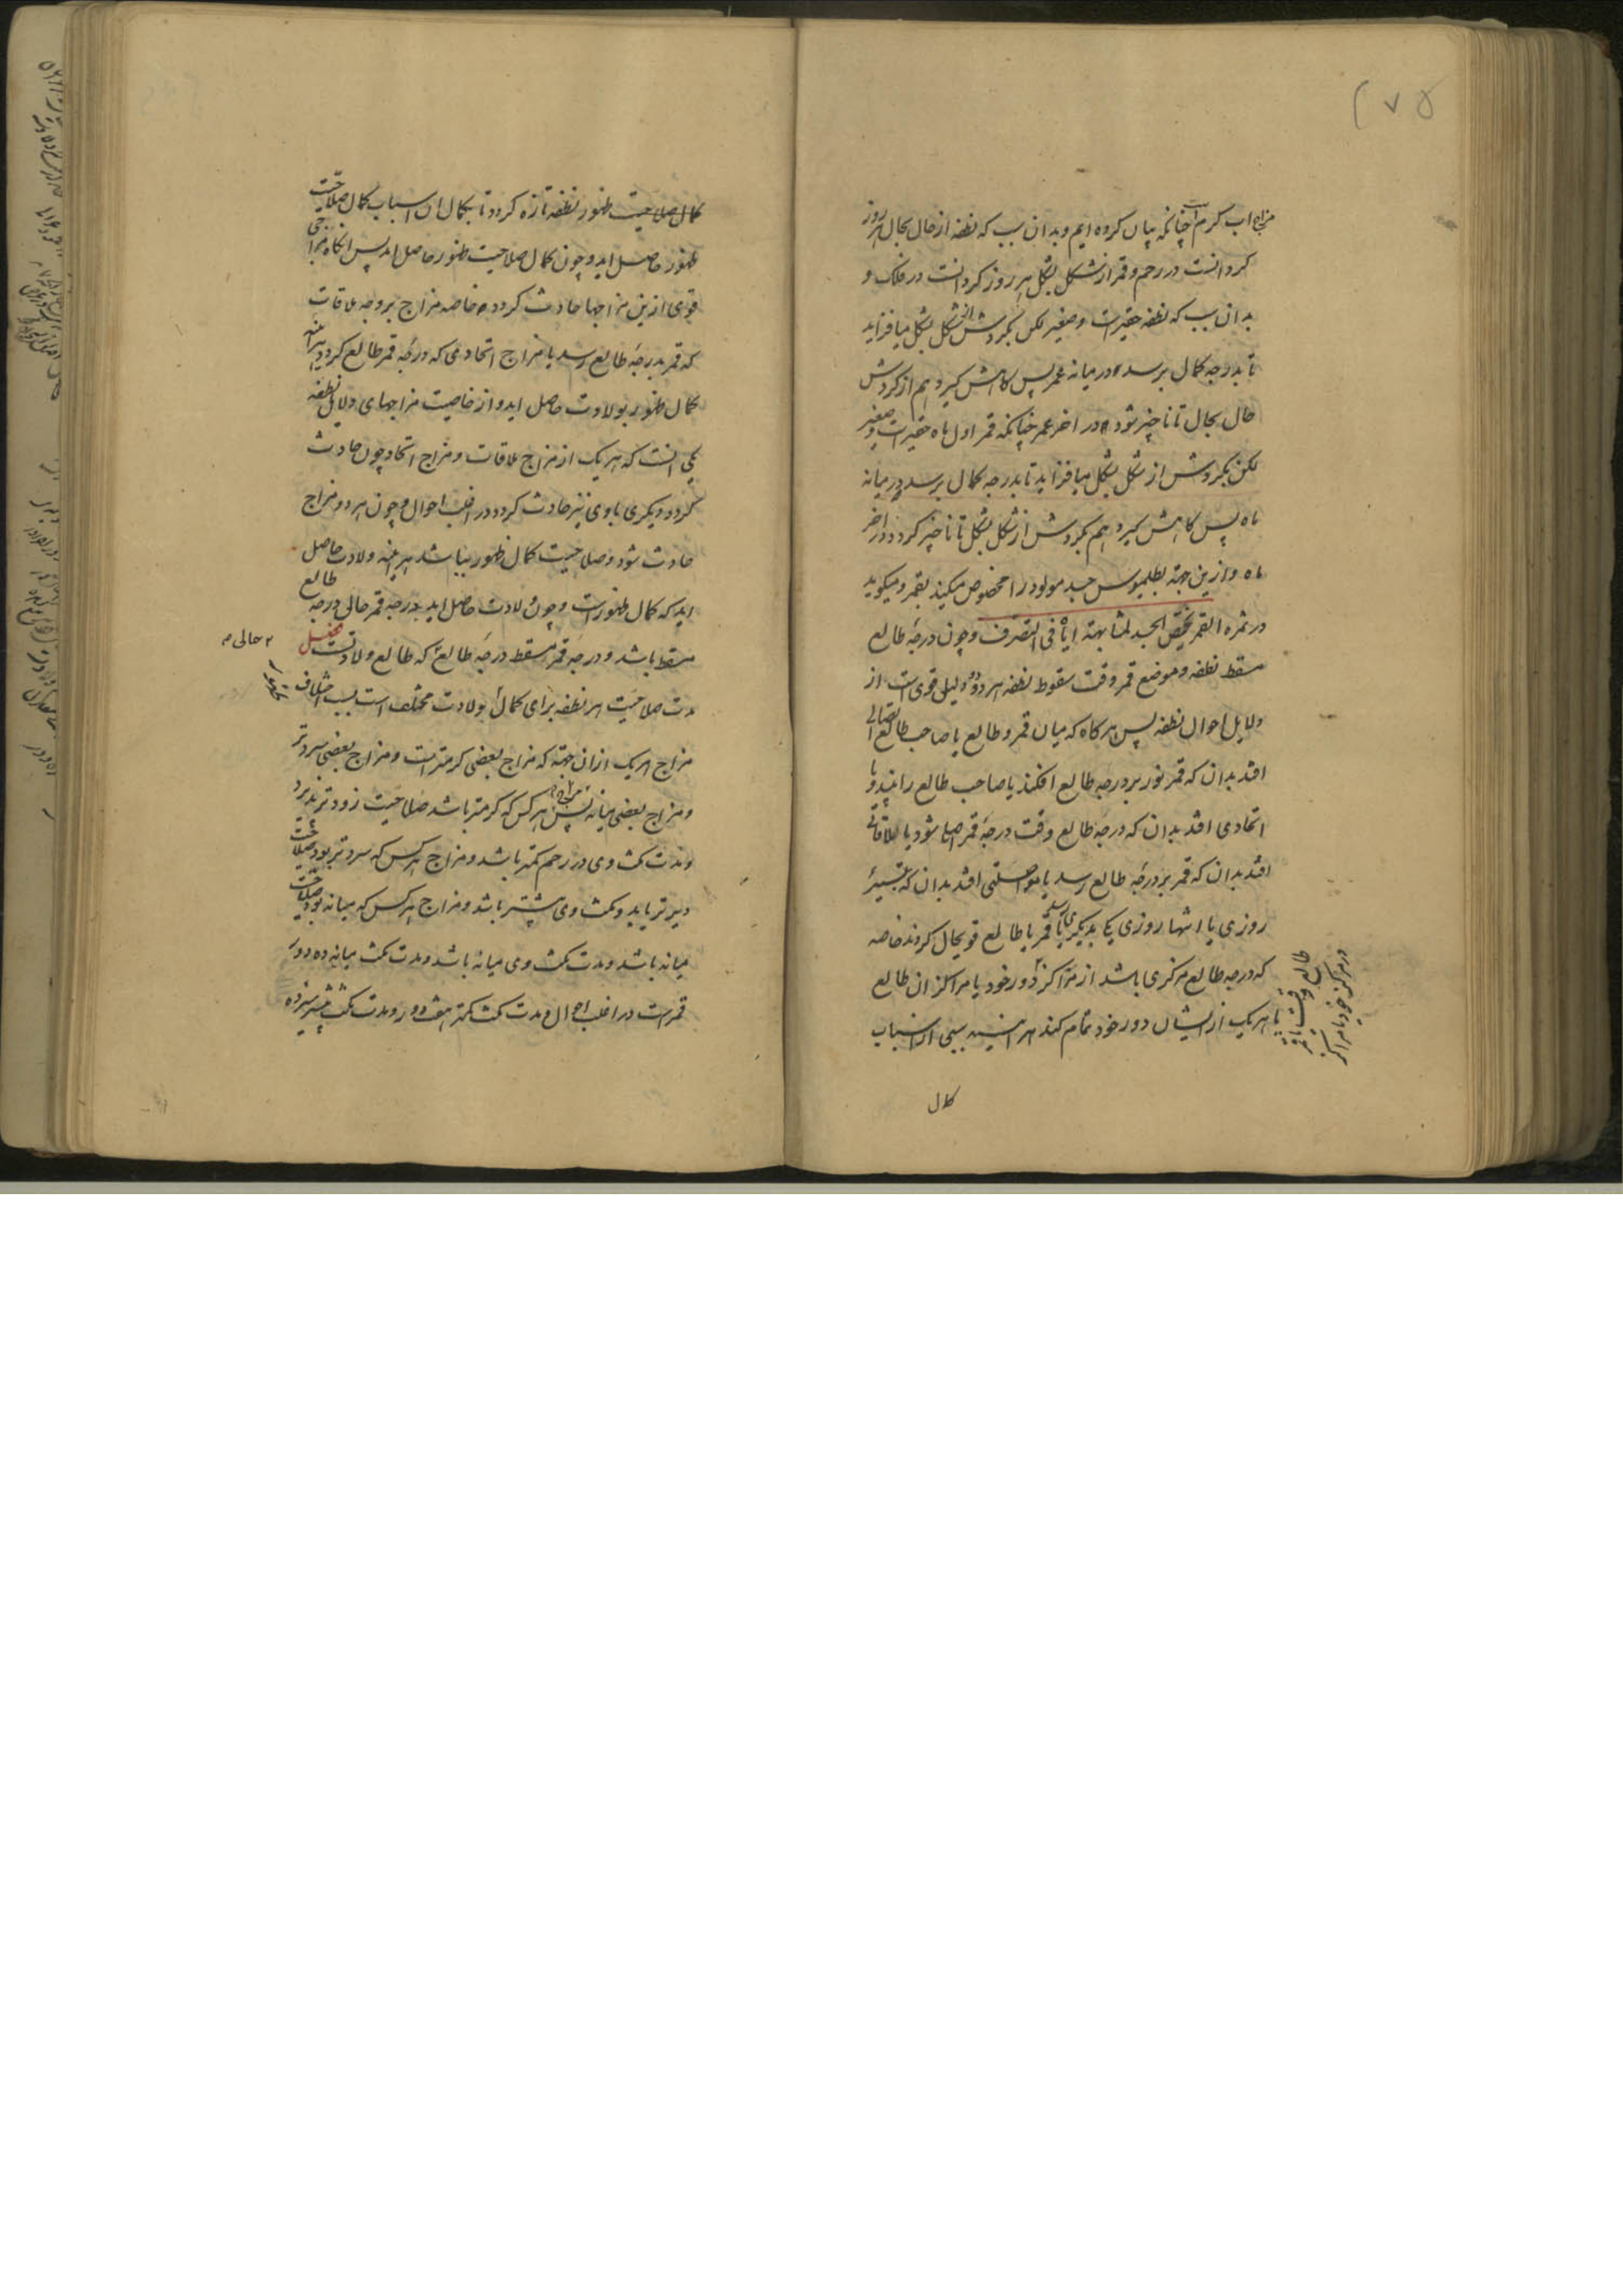 ۲۷۵
مزاج اب کرم است چنانکه بیان کرده ایم و بدان سبب که نطفه از حال بحال هر روز
کردانست در رحم و قمر از شکل بشکل هر روز کردانست در فلک و
بدان سبب که نطفه حقیرست و صغیر لکن بکردش از شکل بشکل میافزاید
تا بدرجه کمال برسد در میانه عمر پس کاهش کیرد هم از کردش
حال بحال تا ناچیز شود در اخر عمر چنانکه قمر اول ماه حقیرست و صغیر
لکن بکردش از شکل بشکل میافزاید تا بدرجه کمال برسد در میانه
ماه پس کاهش کیرد هم بکردش از شکل بشکل تا ناچیز کردد در اخر
ماه و ازین جهته بطلمیوس جسد مولود را مخصوص میکند بقمر و میکوید
در ثمره القمر یختص الجسد لمشابهته ایاه فی التصرف و چون درجه طالع
مسقط نطفه و موضع قمر وقت سقوط نطفه هر دو دلیلی قوی است از
دلایل احوال نطفه پس هرکاه که میان قمر و طالع یا صاحب طالع اتصالی
افتد بدان که قمر نور بر درجه طالع افکند یا صاحب طالع را بیند و یا
اتحادی افتد بدان که درجه طالع وقت درجه قمر اصل شود یا ملاقاتی
افتد بدان که قمر بر درجه طالع رسد یا مواصلتی افتد بدان که بتسییر
روزی یا انتها روزی یکی بدیکری رسد یا قمر یا طالع قوی‌حال کردند خاصه
که درجه طالع مرکزی باشد از مراکز دور خود یا مراکز ان طالع
یا هریک از ایشان دور خود تمام کند هر اینه سببی از اسباب
طالع وقت یا قمر
در مرکز خود یا مراکز
کمال
کمال صلاحیت ظهور نطفه تازه کردد تا بکمال ان اسباب کمال صلاحیت
ظهور حاصل اید و چون کمال صلاحیت ظهور حاصل امد پس انکاه مزاجی
قوی ازین مزاجها حادث کردد خاصه مزاج بر وجه ملاقات
که قمر بدرجه طالع رسد یا مزاج اتحادی که درجه قمر طالع کردد هر اینه
کمال ظهور بولادت حاصل اید و از خاصیت مزاجهای دلایل نطفه
یکی انست که هریک از مزاج ملاقات و مزاج اتحاد چون حادث
کردد دیکری با وی نیز حادث کردد در اغلب احوال و چون هر دو مزاج
حادث شود و صلاحیت کمال ظهور بباشد هر اینه ولادت حاصل
اید که کمال ظهورست و چون ولادت حاصل اید بدرجه قمر حالی درجه طالع
مسقط باشد و درجه قمر مسقط درجه طالع که طالع ولادتست فصل
حالی
مدت صلاحیت هر نطفه برای کمال بولادت مختلف است بسبب اختلاف
مزاج هریک ازان جهته که مزاج بعضی کرمترست و مزاج بعضی سردتر
و مزاج بعضی میانه پس مزاج هر کس که کرمتر باشد صلاحیت زودتر پذیرد
و مدت مکث وی در رحم کمتر باشد و مزاج هر کس که سردتر بود صلاحیت
دیرتر یابد و مکث وی بیشتر باشد و مزاج هر کس که میانه بود صلاحیت
میانه باشد و مدت مکث وی میانه باشد و مدت مکث میانه ده دور
قمرست در اغلب احوال و مدت مکث کمتر هفت دور و مدت مکث بیشتر سیزده